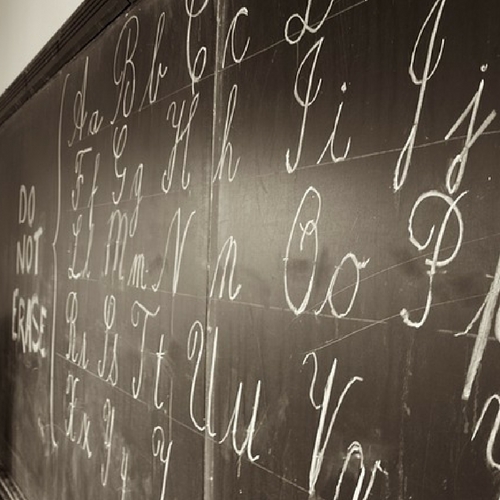 DO
NOT
ERASE
Aa Bb Cc D
Ff Gg Hh Ii Jj
Ll Mm Nn Oo Pp
Rr Ss Tt Uu Vv
Xx Yy